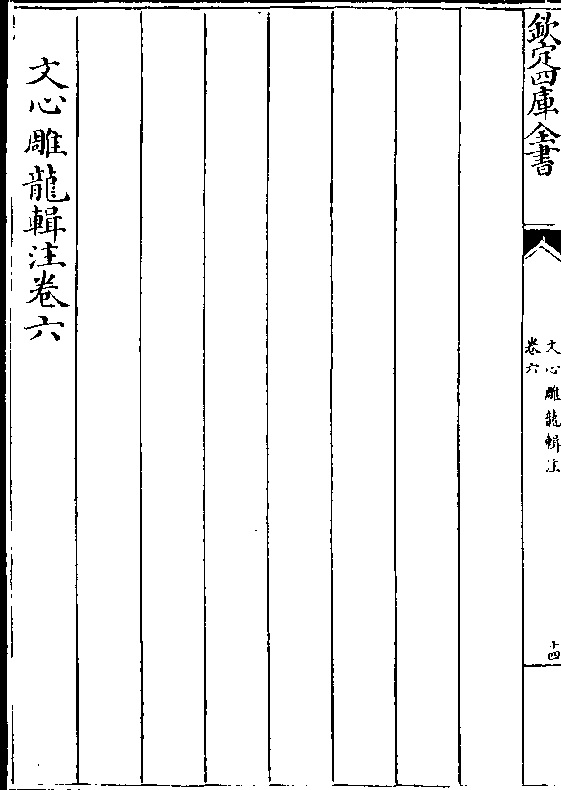 欽定四庫全書
文心雕龍輯注
卷六
十四
文心雕龍輯注卷六